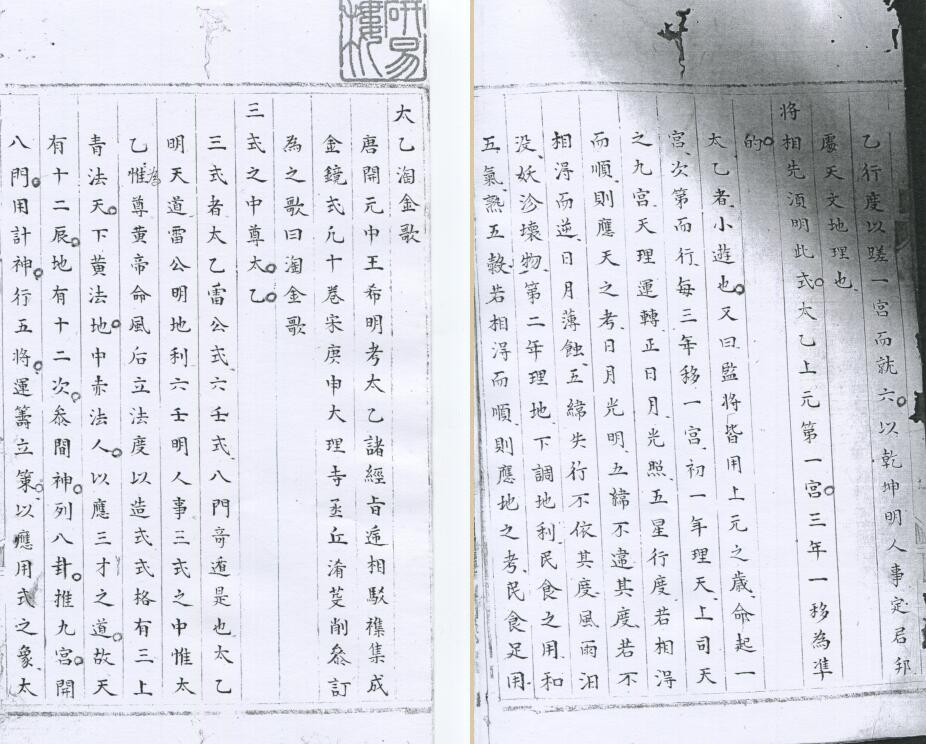 研易樓
太乙淘金歌
唐開元中王希明考太乙諸經旨遞相駁襍集成
金鏡式凡十卷宋庚申大理寺丞丘濬芟削叅訂
為之歌曰淘金歌
三式之中尊太乙
三式者太乙雷公式六壬式八門奇遁是也太乙
明天道雷公明地利六壬明人事三式之中惟太
乙惟為尊黃帝命風后立法度以造式式格有三上
青法天下黃法地中赤法人以應三才之道故天
有十二辰地有十二次叅間神列八卦推九宮開
八門用計神行五將運籌立策以應用式之象太
乙行度以蹉一宮而就六以乾坤明人事定君邦
天文地理也
將相先湏明此式太乙上元第一宮三年一移為準
的
太乙者小遊也又曰監將皆用上元之歲命起一
宮次第而行每三年移一宮初一年理天上司天
之九宮天理運轉正日月光照五星行度若相得
而順則應天之考日月光明五緯不違其度若不
相得而逆日月薄蝕五緯失行不依其度風雨汩
没妖沴壞物第二年理地下調地利民食之用和
五氣熟五穀若相得而順則應地之考民食足用